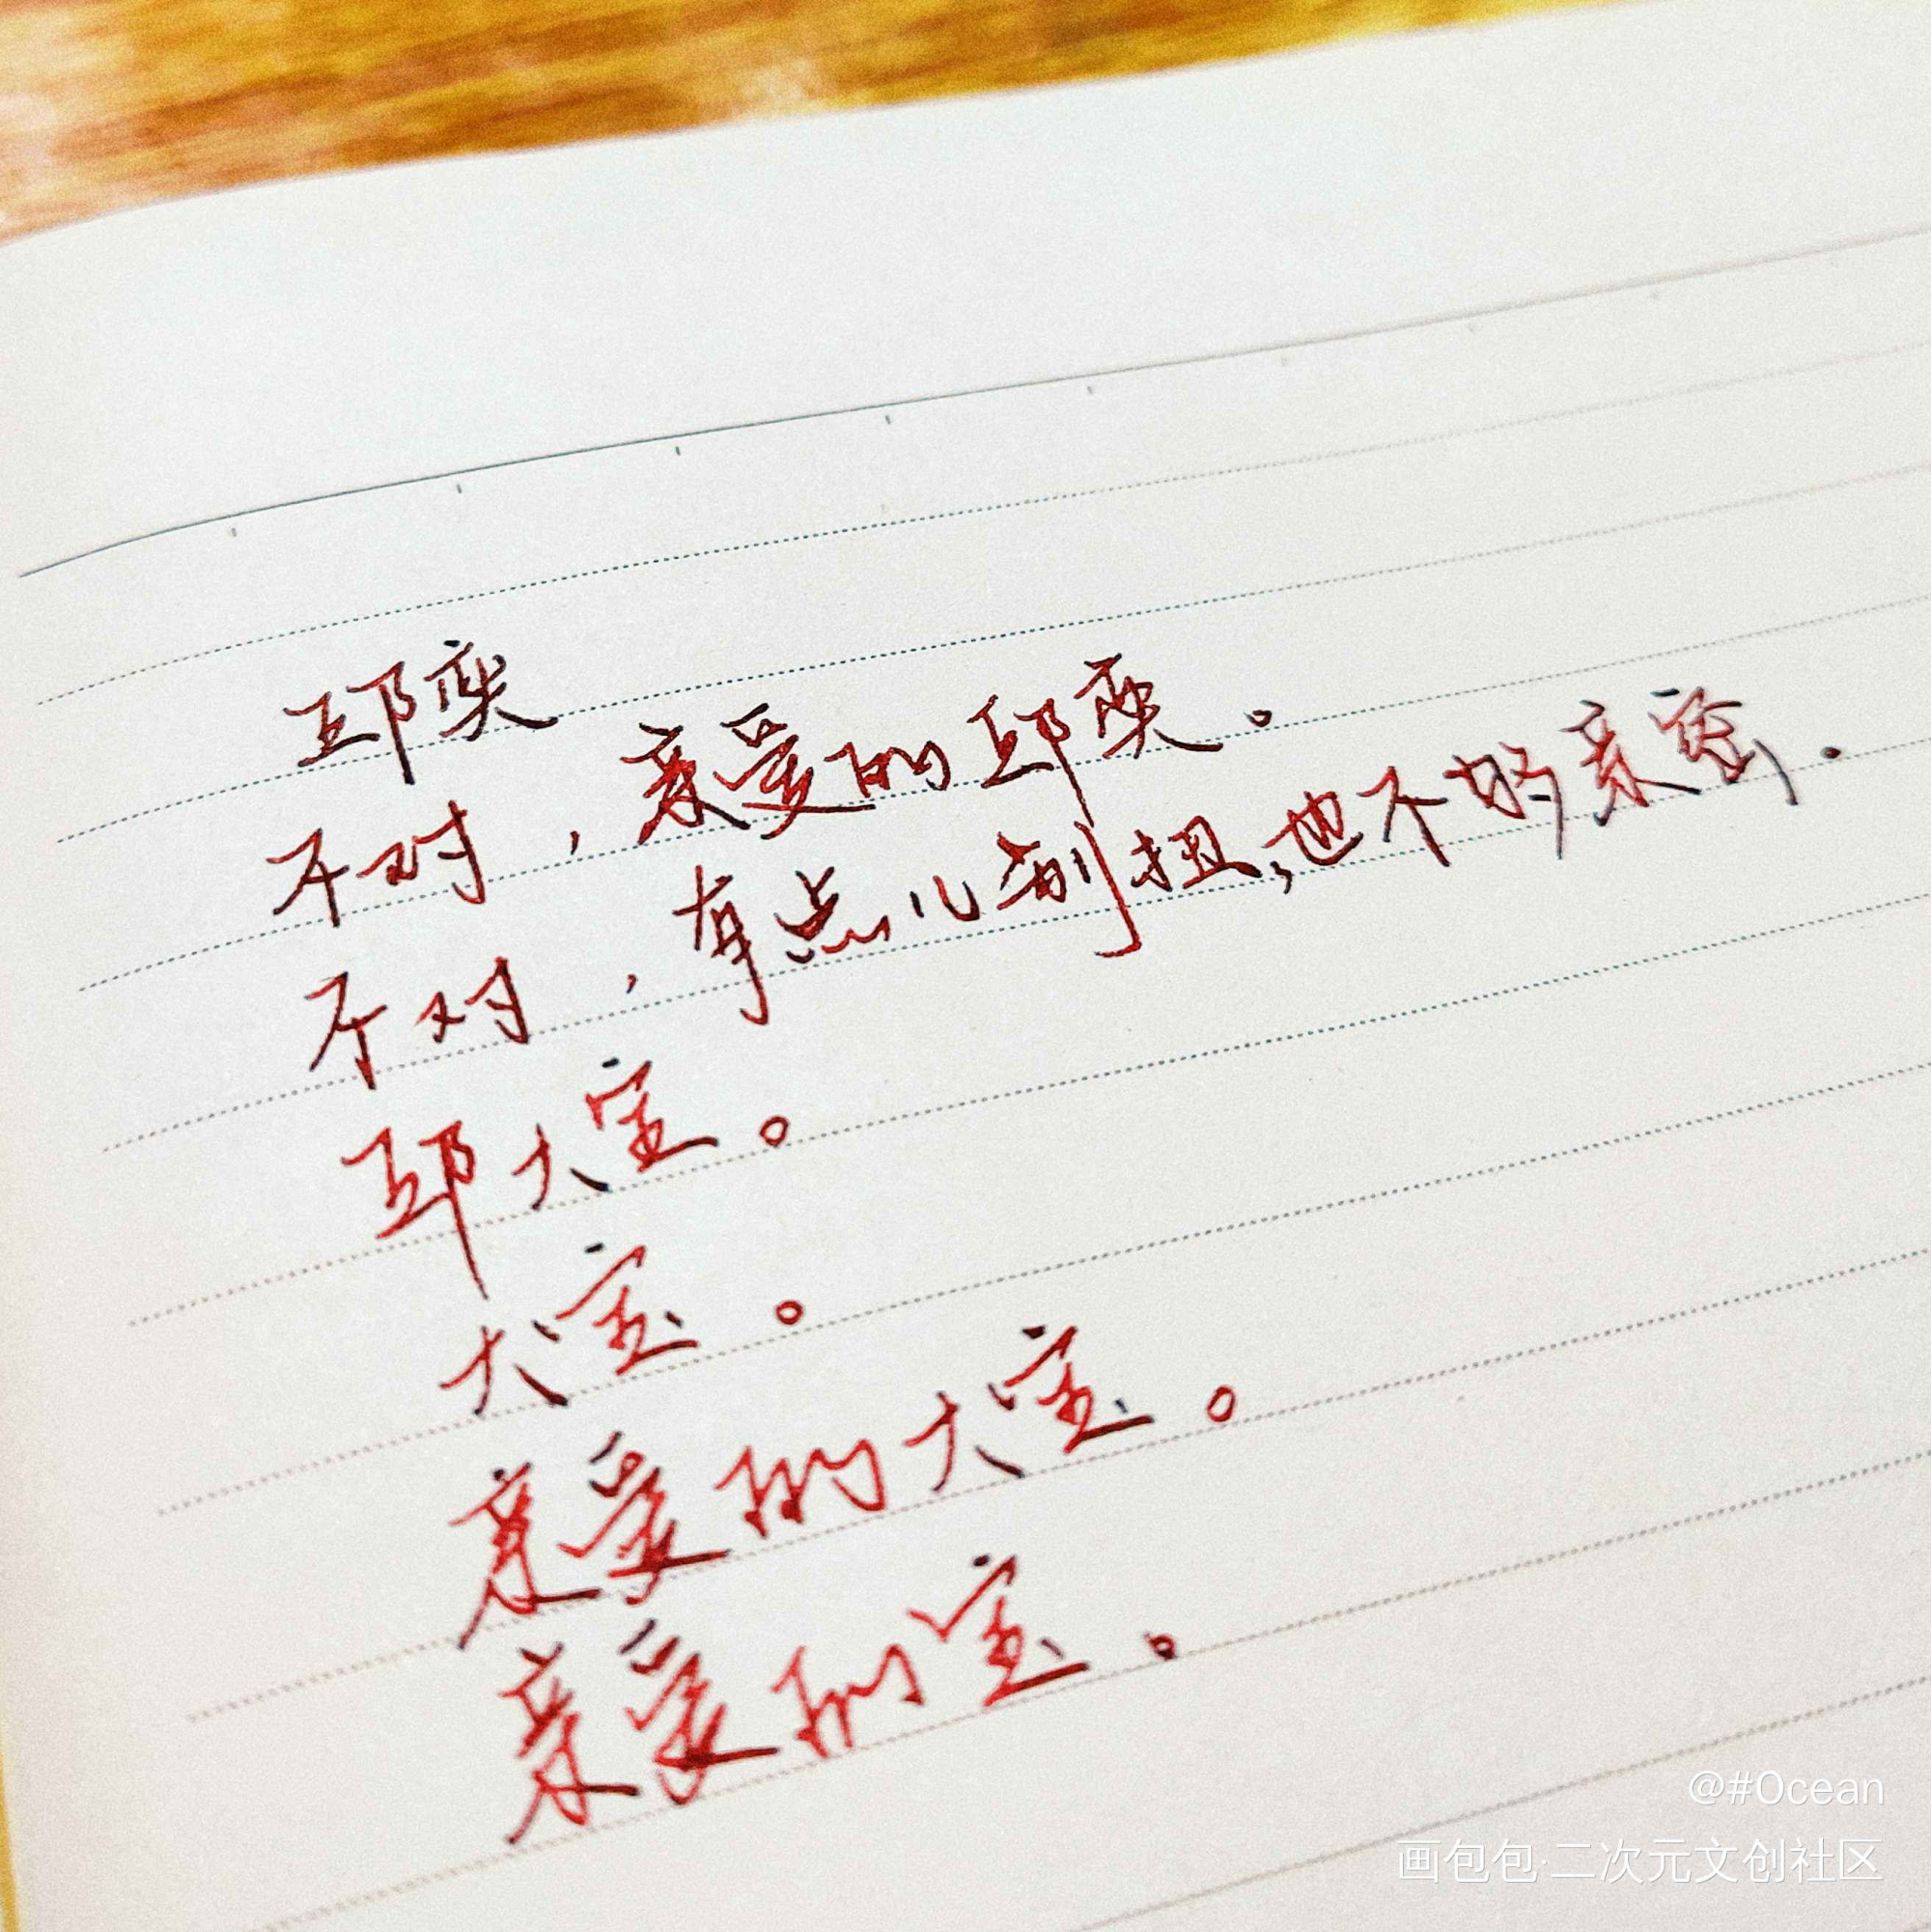 邱奕
不对，亲爱的邱奕。
不对，有点儿别扭，也不够亲密.
邱大宝。
大宝。
亲爱的大宝。
亲爱的宝。
@#Ocean
画包包·二次元文创社区